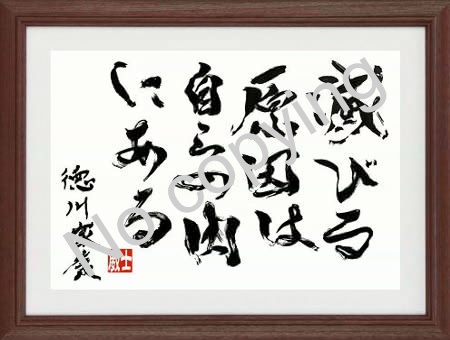 滅びる
原因は
自らの内
にある
徳川家康
No copying